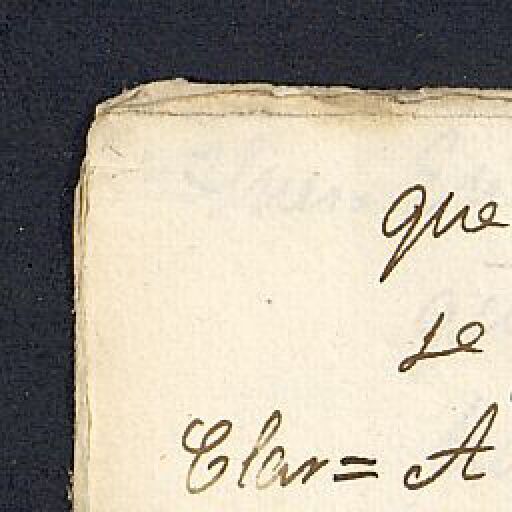 que
se
Clar= A